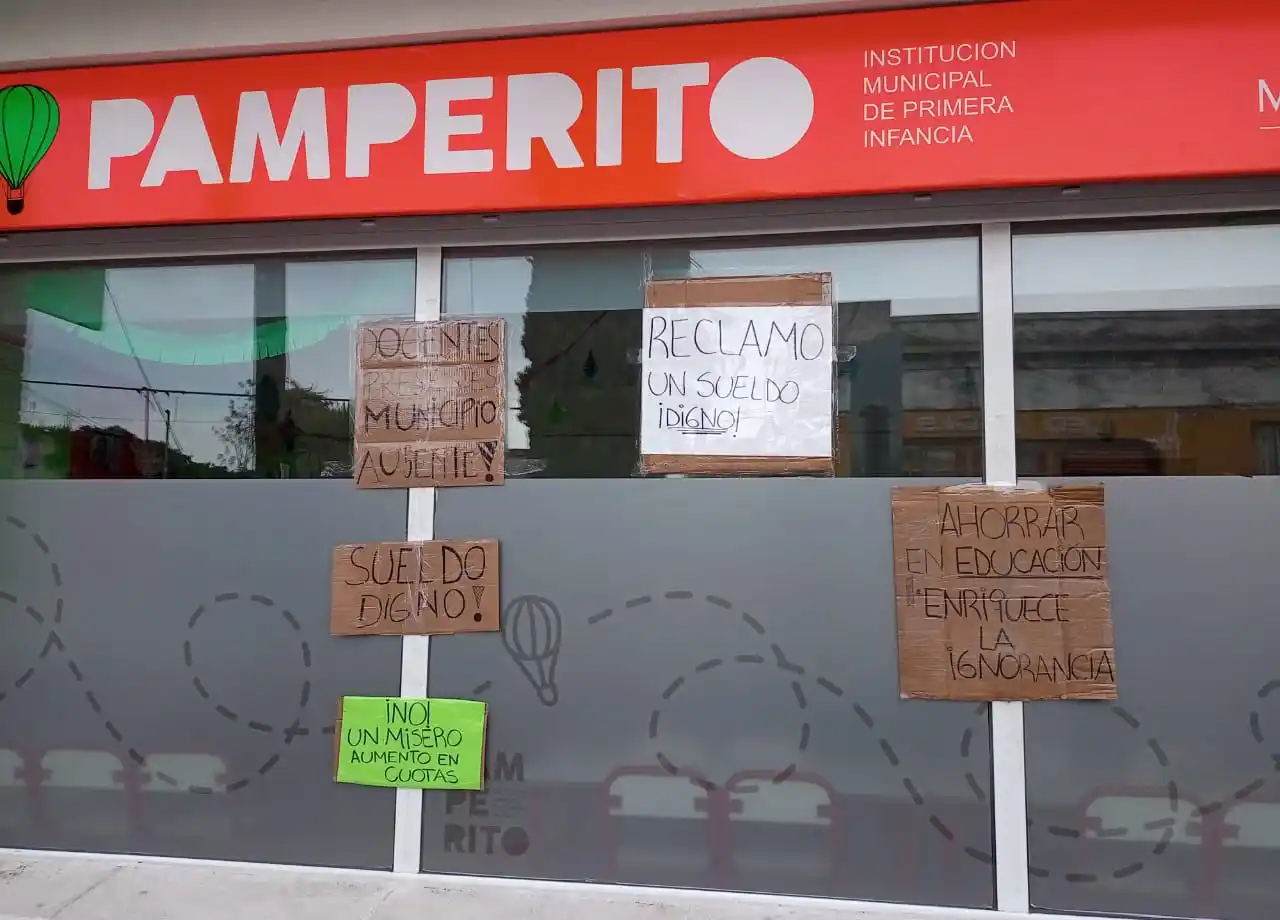 PAMPERITO
INSTITUCION
MUNICIPAL
DE PRIMERA
INFANCIA
M
DOCENTES
PRESENTES
MUNICIPIO
AUSENTE!
RECLAMO
UN SUELDO
¡DIGNO!
SUELDO
DIGNO!
¡NO!
UN MISÉRO
AUMENTO EN
CUOTAS
AHORRAR
EN EDUCACIÓN
ENRIQUECE
LA
IGNORANCIA
PAM
PE
RITO